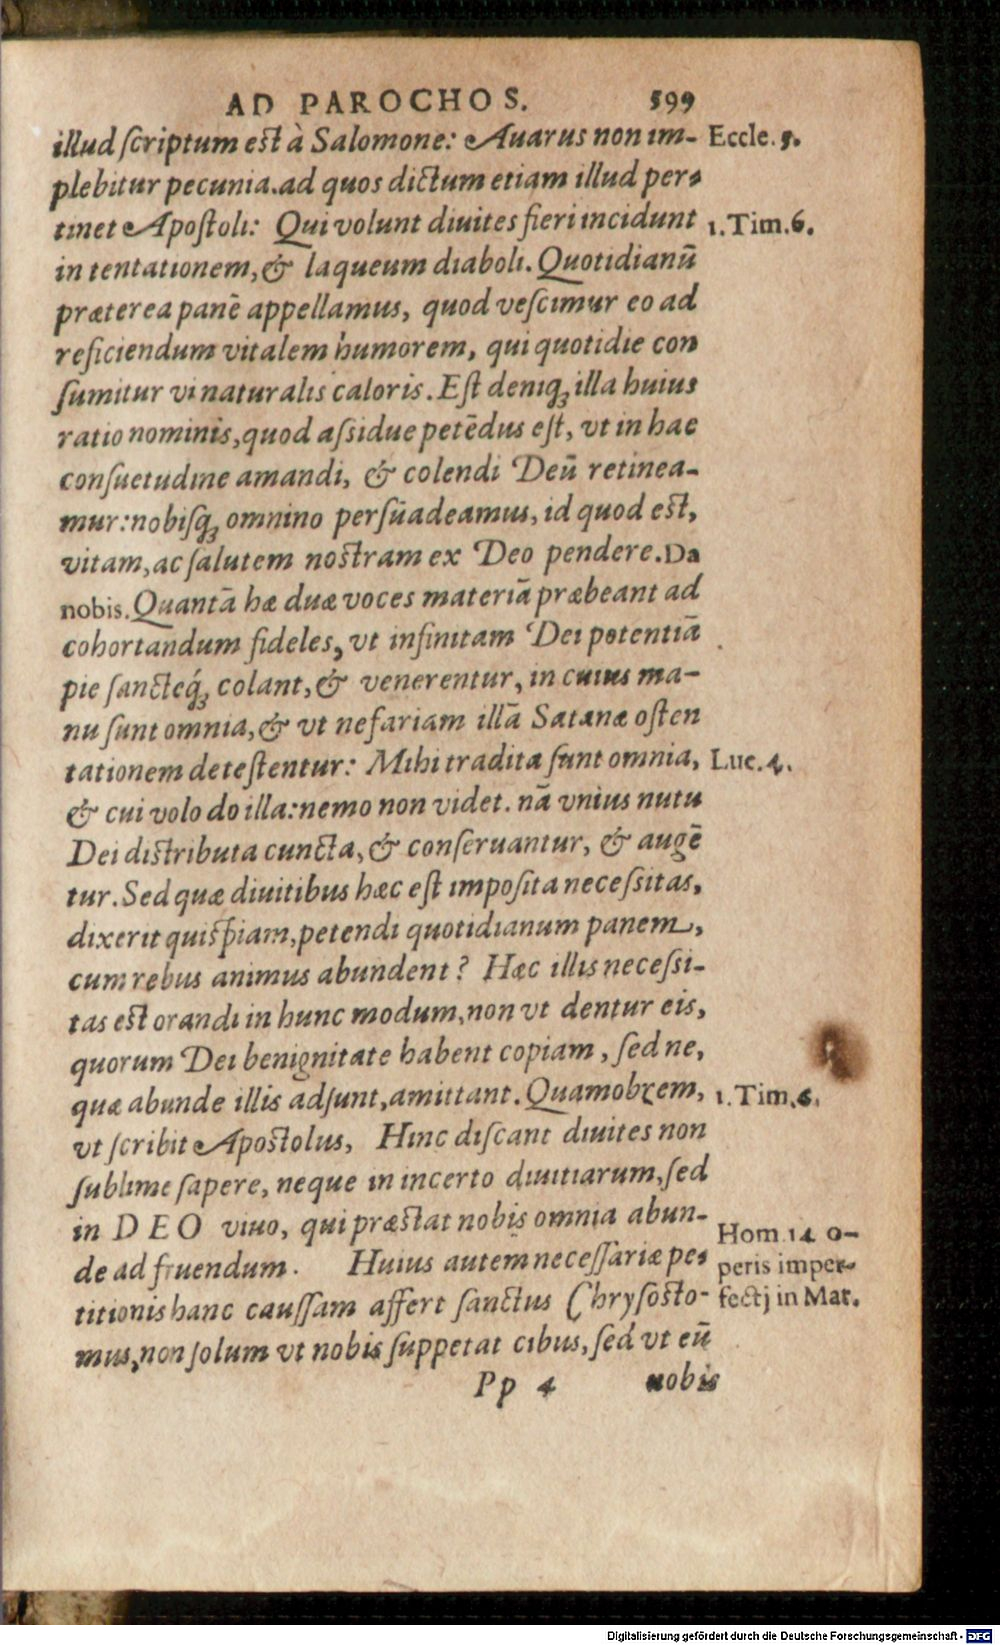 AD PAROCHOS. 599
illud scriptum est à Salomone: Auarus non im-
Eccle. 5.
plebitur pecunia. ad quos dictum etiam illud per-
tinet Apostoli: Qui volunt diuites fieri incidunt
1. Tim. 6.
in tentationem, & laqueum diaboli. Quotidianū
præterea panē appellamus, quod vescimur eo ad
reficiendum vitalem humorem, qui quotidie con
sumitur vi naturalis caloris. Est deniq; illa huius
ratio nominis, quod assidue petēdus est, vt in hac
consuetudine amandi, & colendi Deū retinea-
mur: nobisq; omnino persuadeamus, id quod est,
vitam, ac salutem nostram ex Deo pendere. Da
nobis. Quantā hæ duæ voces materiā præbeant ad
cohortandum fideles, vt infinitam Dei potentiā
pie sancteq́; colant, & venerentur, in cuius ma-
nu sunt omnia, & vt nefariam illā Satanæ osten
tationem detestentur: Mihi tradita sunt omnia,
Luc. 4.
& cui volo do illa: nemo non videt. nā vnius nutu
Dei distributa cuncta, & conseruantur, & augē
tur. Sed quæ diuitibus hæc est imposita necessitas,
dixerit quispiam, petendi quotidianum panem,
cum rebus animus abundent? Hæc illis necessi-
tas est orandi in hunc modum, non vt dentur eis,
quorum Dei benignitate habent copiam, sed ne,
quæ abunde illis adsunt, amittant. Quamobrem,
1. Tim. 6.
vt scribit Apostolus, Hinc discant diuites non
sublime sapere, neque in incerto diuitiarum, sed
in DEO viuo, qui præstat nobis omnia abun-
de ad fruendum. Huius autem necessariæ pe-
titionis hanc caussam affert sanctus Chrysosto-
mus, non solum vt nobis suppetat cibus, sed vt eū
Hom. 14 o-
peris imper-
fectj in Mat.
Pp 4 nobis
Digitalisierung gefördert durch die Deutsche Forschungsgemeinschaft - DFG